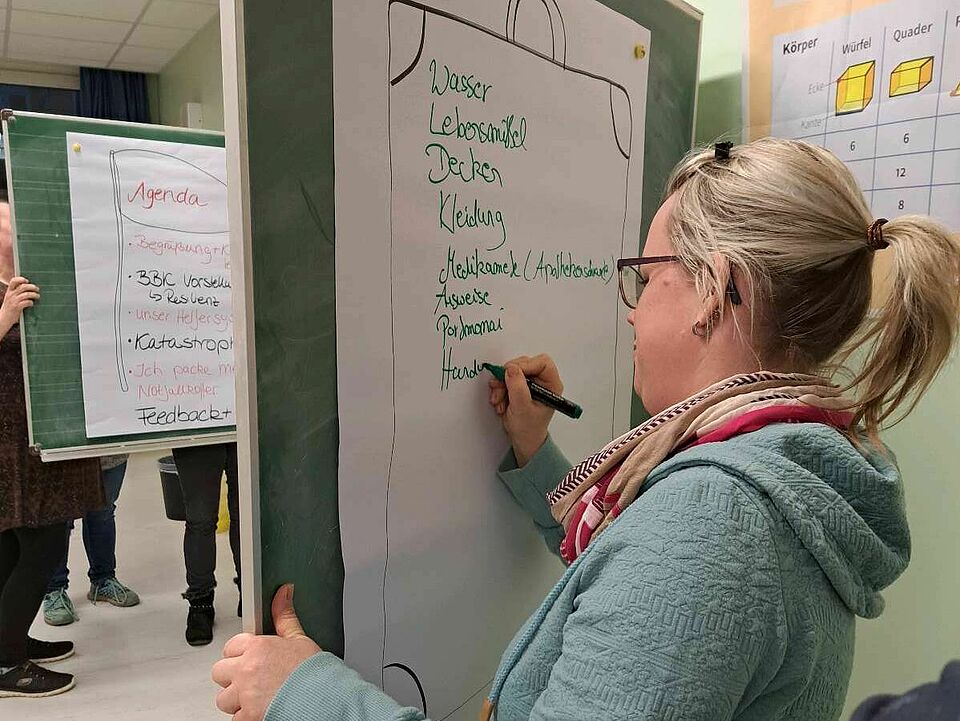 Agenda
· Begrüßung +
· BBK Vorstellu
↳ Resilienz
· unser Helfersys
· Katastroph
· Ich packe me
Notfallkoffer
Feedback +
Wasser
Lebensmittel
Decken
Kleidung
Medikamente (Apothekenschrank)
Ausweise
Portmonai
Handy
Körper
Würfel
Quader
Ecke
Kante
6
6
12
8